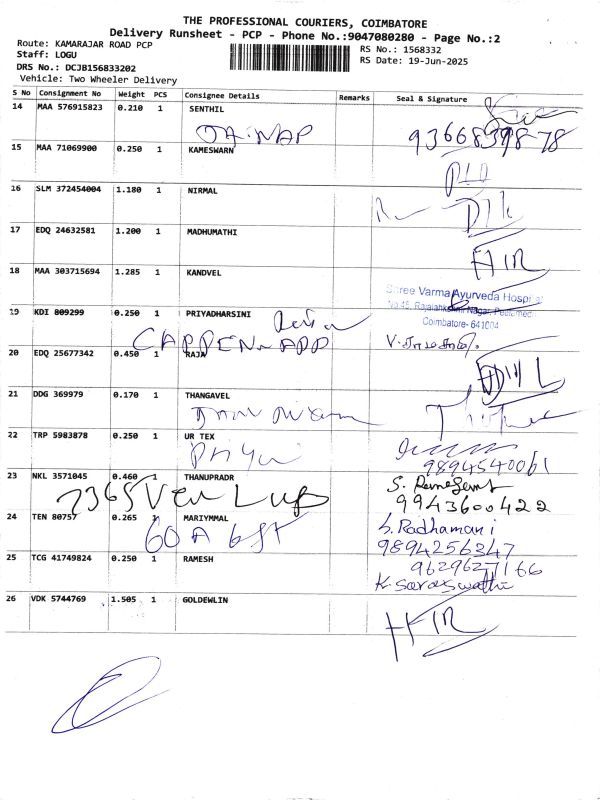 THE PROFESSIONAL COURIERS, COIMBATORE
Delivery Runsheet - PCP - Phone No.:9047080280 - Page No.:2
Route: KAMARAJAR ROAD PCP
Staff: LOGU
DRS No.: DCJB156833202
Vehicle: Two Wheeler Delivery
RS No.: 1568332
RS Date: 19-Jun-2025
S No Consignment No Weight PCS Consignee Details Remarks Seal & Signature
14 MAA 576915823 0.210 1 SENTHIL
9366839878
15 MAA 71069900 0.250 1 KAMESWARN
16 SLM 372454004 1.180 1 NIRMAL
17 EDQ 24632581 1.200 1 MADHUMATHI
18 MAA 303715694 1.285 1 KANDVEL
Shree Varma Ayurveda Hospital
No.45, Rajalakshmi Nagar,
Coimbatore- 641004
19 KDI 809299 0.250 1 PRIYADHARSINI
20 EDQ 25677342 0.450 1 RAJA
21 DDG 369979 0.170 1 THANGAVEL
22 TRP 5983878 0.250 1 UR TEX
Priya
9894540061
23 NKL 3571045 0.460 1 THANUPRADR
9943600422
24 TEN 80757 0.265 1 MARIYMMAL
S. Radhamani
9894256347
25 TCG 41749824 0.250 1 RAMESH
9629627166
K. Saraswathi
26 VDK 5744769 1.505 1 GOLDEWLIN